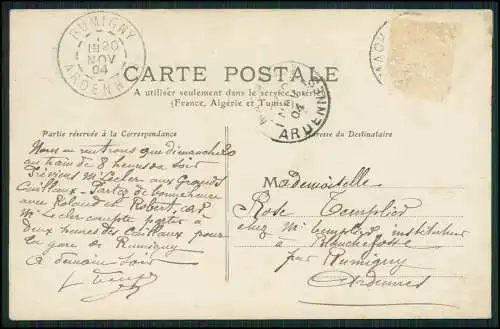 RUMIGNY
1E 20
NOV
04
ARDENNES
CARTE POSTALE
A utiliser seulement dans le service intérieur
(France, Algérie et Tunisie)
NOV
04
ARDENNES
Partie réservée à la Correspondance
Adresse du Destinataire
Nous rentrons que dimanche 20
au train de 8 heures du soir
Préviens Mr Lecler aux Grands
Caillaux - Partez de bonne heure
avec Roland et Robert, car
Mr Lecler compte partir à
deux heures des Caillaux pour
la gare de Rumigny
A demain soir
Mademoiselle
Rose Templier
chez Mr Templier instituteur
à Blanchefosse
par Rumigny
Ardennes